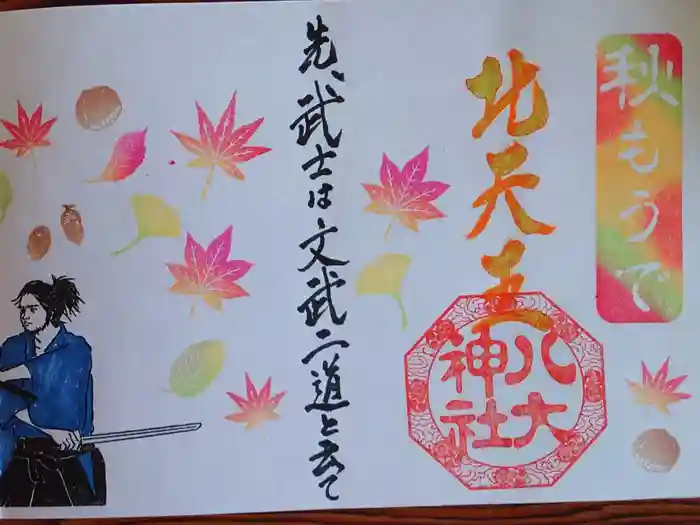 秋もうで
北天王
八大神社
先、武士は文武二道と云て